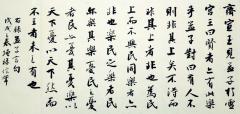 齊宣王見孟子於雪
宮王曰賢者亦有此樂
乎孟子對曰有人不得
則非其上矣不得而
非其上者非也為民
上而不與民同樂者亦
非也樂民之樂者民
亦樂其樂憂民之憂
者民亦憂其憂樂以
天下憂以天下然而
不王者未之有也
右錄孟子
戊戌